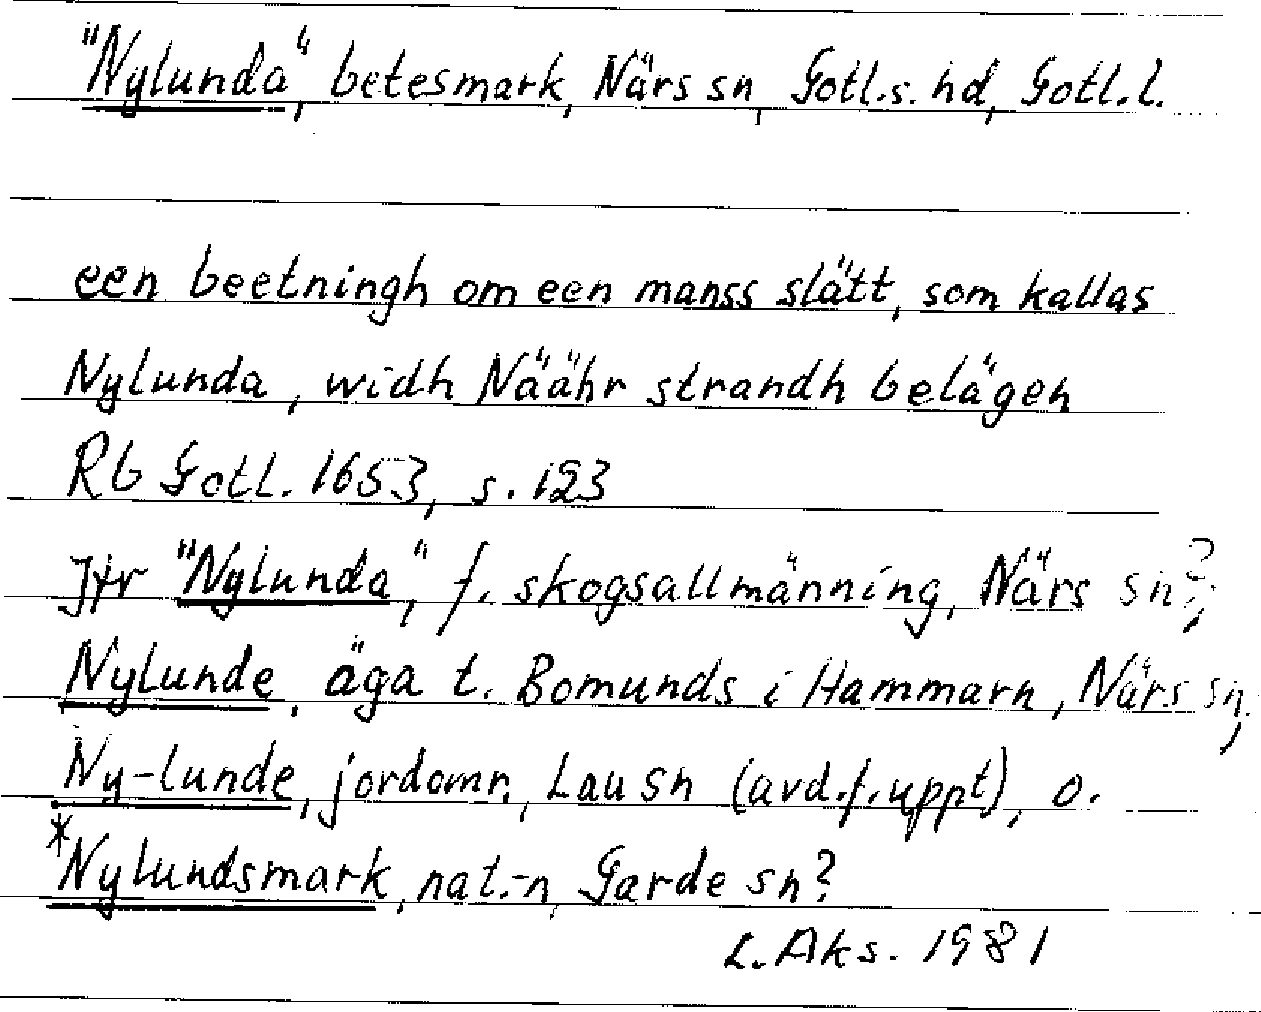 "Nylunda", betesmark, Närs sn, Gotl.s. hd, Gotl. l.
een beetningh om een manss slätt, som kallas
Nylunda, widh Näähr strandh belägen
Rb Gotl. 1653, s. 123
Jfr "Nylunda", f. skogsallmänning, Närs sn?;
Nylunde, äga t. Bomunds i Hammarn, Närs sn,
Ny-lunde, jordomr., Lau sn (avd.f.uppt), o.
*Nylundsmark, nat.-n, Garde sn?
L. Aks. 1981